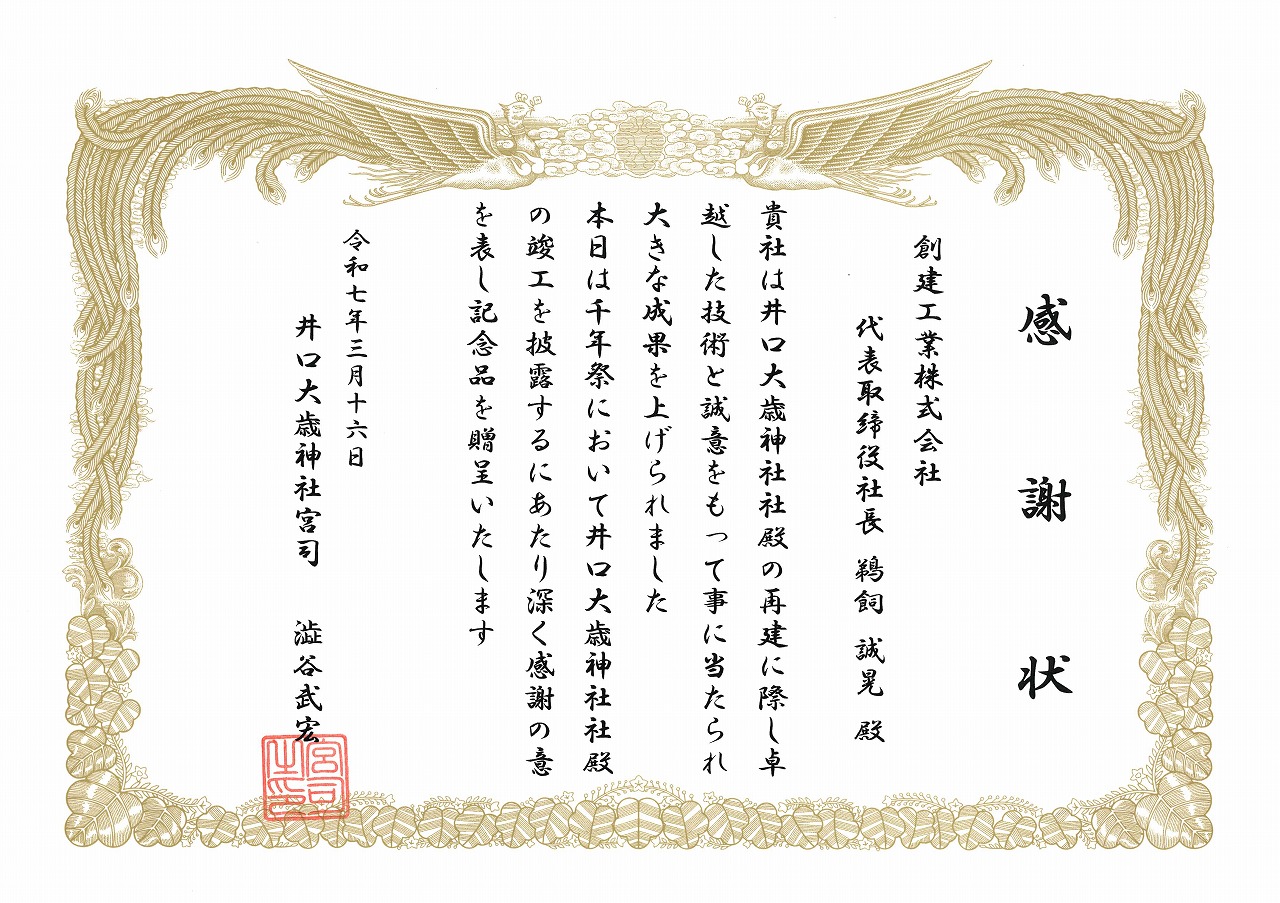 感謝状
創建工業株式会社
代表取締役社長 鵜飼 誠晃 殿
貴社は井口大歳神社社殿の再建に際し卓
越した技術と誠意をもって事に当たられ
大きな成果を上げられました
本日は千年祭において井口大歳神社社殿
の竣工を披露するにあたり深く感謝の意
を表し記念品を贈呈いたします
令和七年三月十六日
井口大歳神社宮司 澁谷武宏
宮司之印